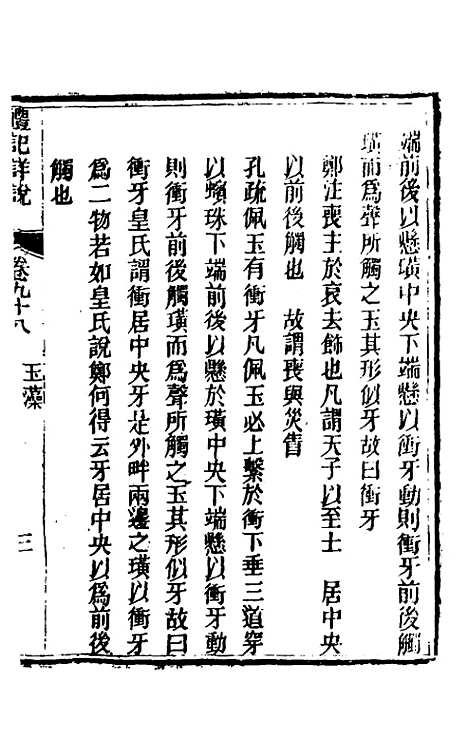 端前後以懸璜中央下端懸以衝牙動則衝牙前後觸
璜而爲聲所觸之玉其形似牙故曰衝牙
鄭注喪主於哀去飾也凡謂天子以至士　居中央
以前後觸也　故謂喪與災眚
孔疏佩玉有衝牙凡佩玉必上繫於衡下垂三道穿
以蠙珠下端前後以懸於璜中央下端懸以衝牙動
則衝牙前後觸璜而爲聲所觸之玉其形似牙故曰
衝牙皇氏謂衝居中央牙是外畔兩邊之璜以衝牙
爲二物若如皇氏說鄭何得云牙居中央以爲前後
觸也
禮記詳說
卷九十八
玉藻
三